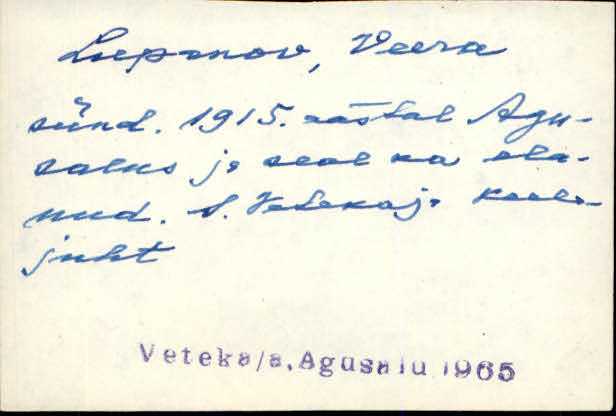 Lupanov, Veera
sünd. 1915. aastal Agu-
salus ja seal ka ela-
nud. S. Vetekaja keele-
juht
Veteka/a, Agusalu 1965